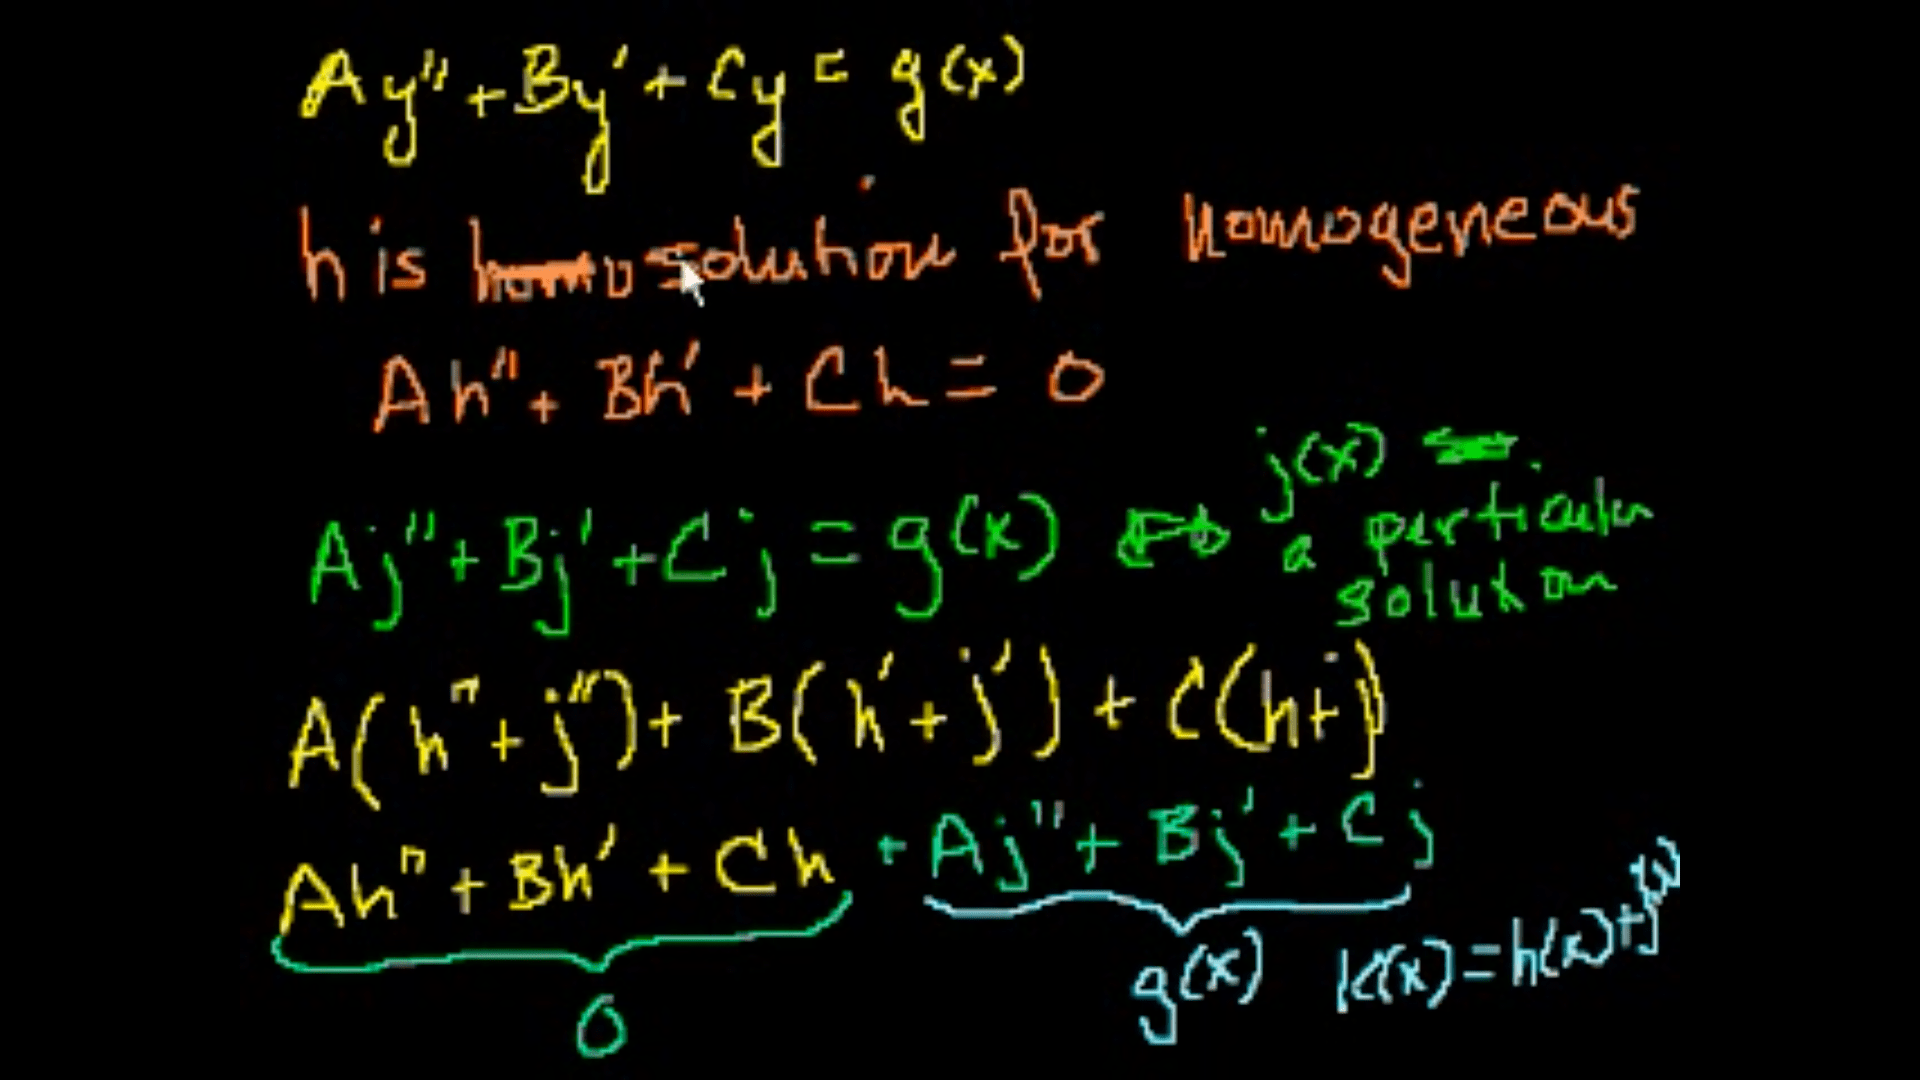 Ay" + By' + Cy = g(x)
h is homo solution for homogeneous
Ah" + Bh' + Ch = 0
j(x) =
Aj" + Bj' + Cj = g(x) ↔ a particular
solution
A(h" + j") + B(h' + j') + C(h+j)
Ah" + Bh' + Ch + Aj" + Bj' + Cj
0 g(x) k(x) = h(x) + j(x)